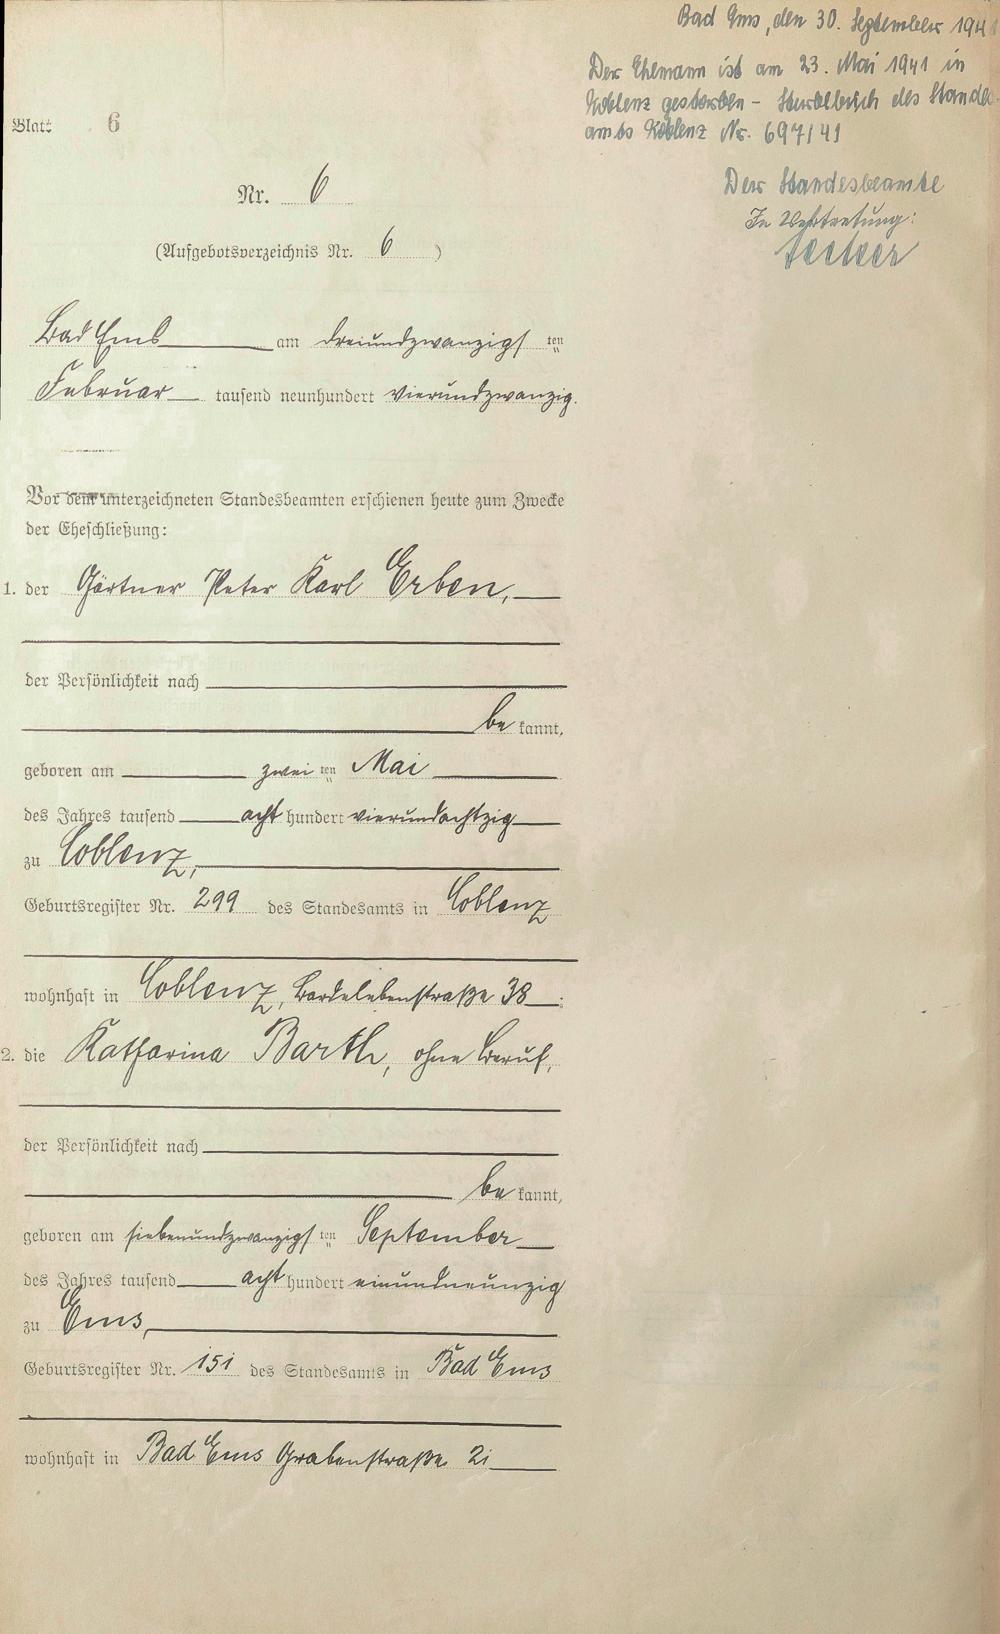 Bad Ems, den 30. September 1941
Der Ehemann ist am 23. Mai 1941 in
Koblenz gestorben - Sterbebuch des Standes-
amts Koblenz Nr. 697/41
Der Standesbeamte
In Vertretung:
Blatt 6
Nr. 6
(Aufgebotsverzeichnis Nr. 6)
Bad Ems am dreiundzwanzigsten
Februar tausend neunhundert vierundzwanzig.
Vor dem unterzeichneten Standesbeamten erschienen heute zum Zwecke
der Eheschließung:
1. der Gärtner Peter Karl Erben,
der Persönlichkeit nach
bekannt,
geboren am zweiten Mai
des Jahres tausend acht hundert vierundachtzig
zu Coblenz,
Geburtsregister Nr. 299 des Standesamts in Coblenz
wohnhaft in Coblenz, Bardelebenstraße 38.
2. die Katharina Barth, ohne Beruf,
der Persönlichkeit nach
bekannt,
geboren am siebenundzwanzigsten September
des Jahres tausend acht hundert einundneunzig
zu Ems,
Geburtsregister Nr. 151 des Standesamts in Bad Ems
wohnhaft in Bad Ems Grabenstraße 21